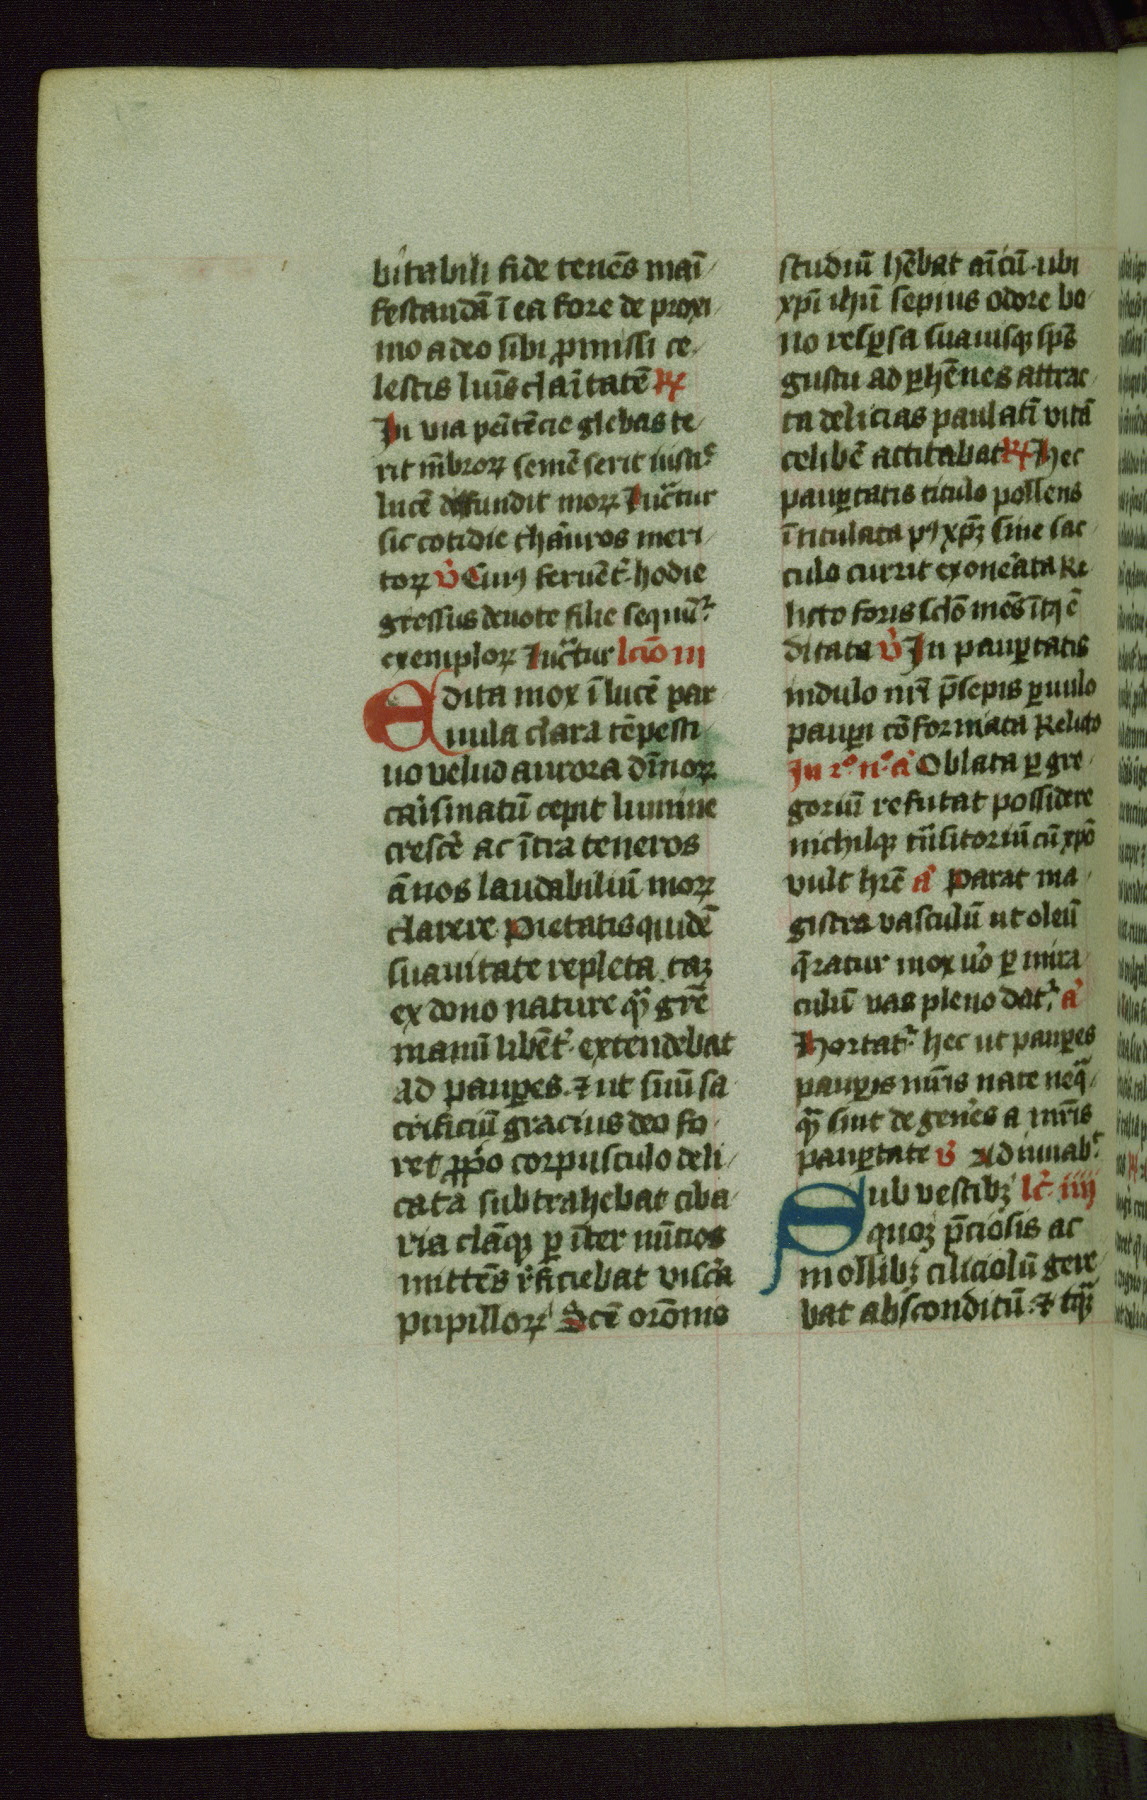 bitabili fide tenēs maī
festandā ī ea fore de proxi
mo a deo sibi ꝓmissi ce
lestis lum̄s claꝛ̄itatē ℟
In via peītēcie glebas te
rit m̄broꝝ semē serit iusti
lucē diffundit moꝝ Iuc̄tur
sic cotidie thāuros meri
toꝝ v̓ Cuiꝰ feruēt̓ hodie
gressus deuote filie sequūt᷑
exemploꝝ Iuc̄tur lc̄io iii
Edita mox ī lucē par
uula clara tēpesti
uo velud aurora dīnoꝝ
carīsmatū cepit lumine
cresce̓ ac īt̓ra teneros
ānos laudabiliū moꝝ
clarere Pietatis quidē
suauitate repleta taꝫ
ex dono nature qͣꝫ gr̄e
manū libēt̓ extendebat
ad pauꝑes ⁊ ut suū sa
crificiū gracius deo fo
ret ꝓpō corpusculo deli
cata subtrahebat ciba
ria clāqꝫ ꝑ īter nūtios
mittēs r̓ficiebat visce̓a
pupilloꝝ Sc̄e or̄onis
studiū hēbat aīcū ubi
xp̄i ih̄u sepius odore bo
no resꝑsa suauisqꝫ sp̄s
gustu ad ꝑhēnes attrac
ta delicias paulatī vitā
celibē actitabat ℟ Hec
pauꝑtatis titulo pollens
ītitulata pꝰ xpꝫ̄ sine sac
culo currit exone̓ata Re
licto foris sc̄lo mēs īt̓iꝰ ē
ditata v̓ In pauꝑtatis
nidulo nr̄i p̄sepis ꝑuulo
pauꝑi cōformata Relicto
In 2º nº a̓ Oblata ꝑ gre
goriū refutat possidere
nichilqꝫ tn̄sitoriū cū xp̄o
vult hr̄e a̓ Parat ma
gistra vasculū ut oleū
q̄ratur mox u̓o ꝑ mira
culū vas pleno dat᷑ a̓
Hortat᷑ hec ut pauꝑes
pauꝑis mr̄is nate neqͣ
qͣꝫ sint degene̓s a mr̄is
pauꝑtate v̓ Adiuuabᵗ
Sub vestibꝫ lc̓ iiii
quoqꝫ p̄ciosis ac
mollibꝫ ciliciolū gere
bat absconditū ⁊ tāqͣꝫ